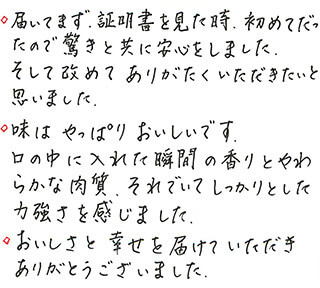 ◇届いてまず、証明書を見た時、初めてだっ
たので驚きと共に安心をしました。
そして改めて ありがたくいただきたいと
思いました。
◇味は やっぱり おいしいです。
口の中に入れた瞬間の香りとやわ
らかな肉質、それでいてしっかりとした
力強さを感じました。
◇おいしさと 幸せを届けていただき
ありがとうございました。